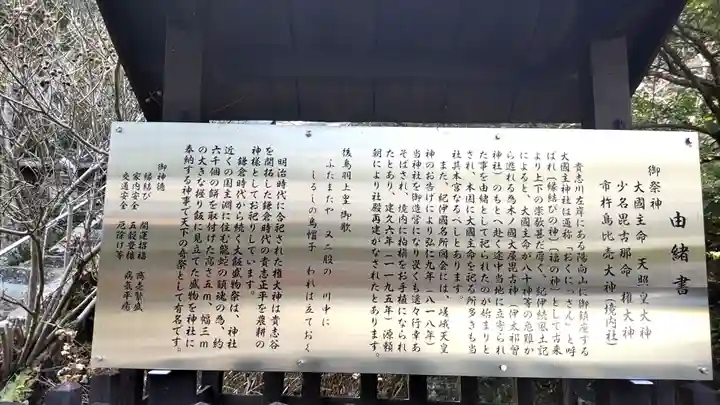 由緒書
御祭神
大國主命 天照皇大神
少名毘古那命 権大神
市杵島比売大神(境内社)
貴志川左岸にある陽向山に御鎮座する
大國主神社は通称「おくにっさん」と呼
ばれ(縁結びの神)(福の神)として古来
より上下の崇敬甚だ厚く、紀伊続風土記
によると、大國主命が八十神等の危難か
ら逃れる為木ノ国大屋毘古神(伊太祁曽
神社)のもとへ赴く途中当地に立寄られ
た事を由緒として祀られたのが始まりと
され、本国に大國主命を祀る所多きも当
社其本宮なるべしとあります。
また、紀伊國名所図会には、嵯峨天皇
神のお告げにより弘仁九年(八一八年)
当神社を御造営になり畏くも遙々行幸あ
そばされ、境内に柏槇をお手植になられ
たとあり、建久六年(一一九五年)源頼
朝により社殿再建がなされたとあります。
後鳥羽上皇 御歌
ふたまたや 又二股の 川中に
しるしの烏帽子 われは立ておく
明治時代に合祀された権大神は貴志谷
を開拓した鎌倉時代の貴志正平を農耕の
神様としてお祀りしています。
鎌倉時代から続く大飯盛物祭は、神社
近くの国主淵に住む龍蛇の鎮魂の為、約
六千個の餅を取付けた高さ五m、幅三m
の大きな握り飯に見立てた盛物を神社に
奉納する神事で天下の奇祭として有名です。
御神徳
縁結び 開運招福 商売繁盛
家内安全 五穀豊穣 病気平癒
交通安全 厄除け等